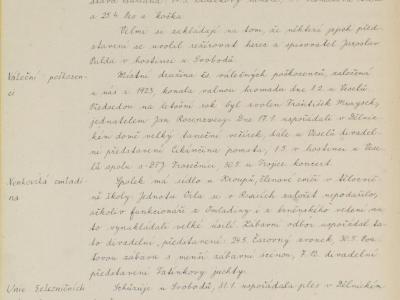 a 25.4. Leo a kočka.
Velmi se zakládají na tom, že některá jejich před-
stavení se uvolil režírovat herec a spisovatel Jaroslav
Pulda v hostinci u Svobodů.
Váleční poškozen-
ci
Místní družina čs. válečných poškozenců, založená
u nás r. 1923, konala valnou hromadu dne 1.2. u Veselů.
Předsedou na letošní rok byl zvolen František Mrazyseh,
jednatelem Jan Rosenzweig. Dne 17.1. uspořádali v Dělnic-
kém domě velký taneční věneček, dále u Veselů divadel-
ní představení Cikánčina pomsta, 1.5. v hostinci u Vese-
lů spolu s DTJ Trosečníci, 30.5. u Trojice koncert.
Venkovská omladi
na
Spolek má sídlo u Kroupů, členové cvičí v tělocvič-
ně školy. Jednotu Orla se v Rosicích založit nepodařilo,
ačkoliv funkcionáři z Omladiny i z brněnského vedení na
to vynakládali velké úsilí. Zábavní odbor uspořádal ta-
to divadelní představení: 24.5. Čarovný zvonek, 30.5. Pou-
ťovou zábavu s menší zábavní scénou, 7.12. divadelní
představení Tatínkovy juchty.
Unie železničních
Schůzuje u Svobodů, 31.1. uspořádala ples v Dělnickém